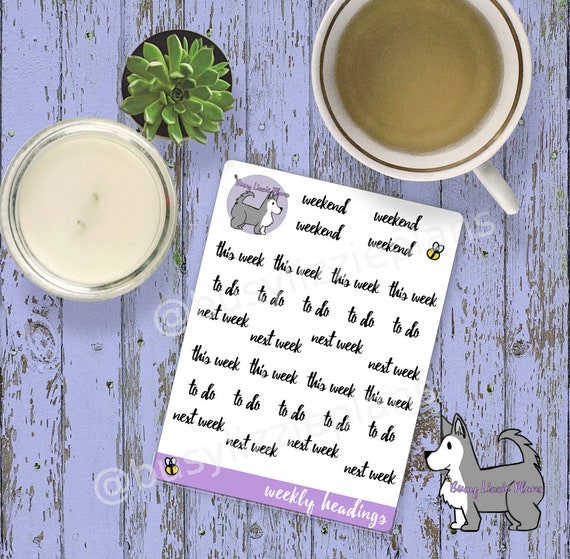 Busy Lizzie Plans
weekend weekend
weekend weekend
this week this week this week this week
to do to do to do to do to do
next week next week next week next week
this week this week this week this week
to do to do to do to do to do
next week next week next week next week
weekly headings
@busylizzieplans
@busylizzieplans
Busy Lizzie Plans